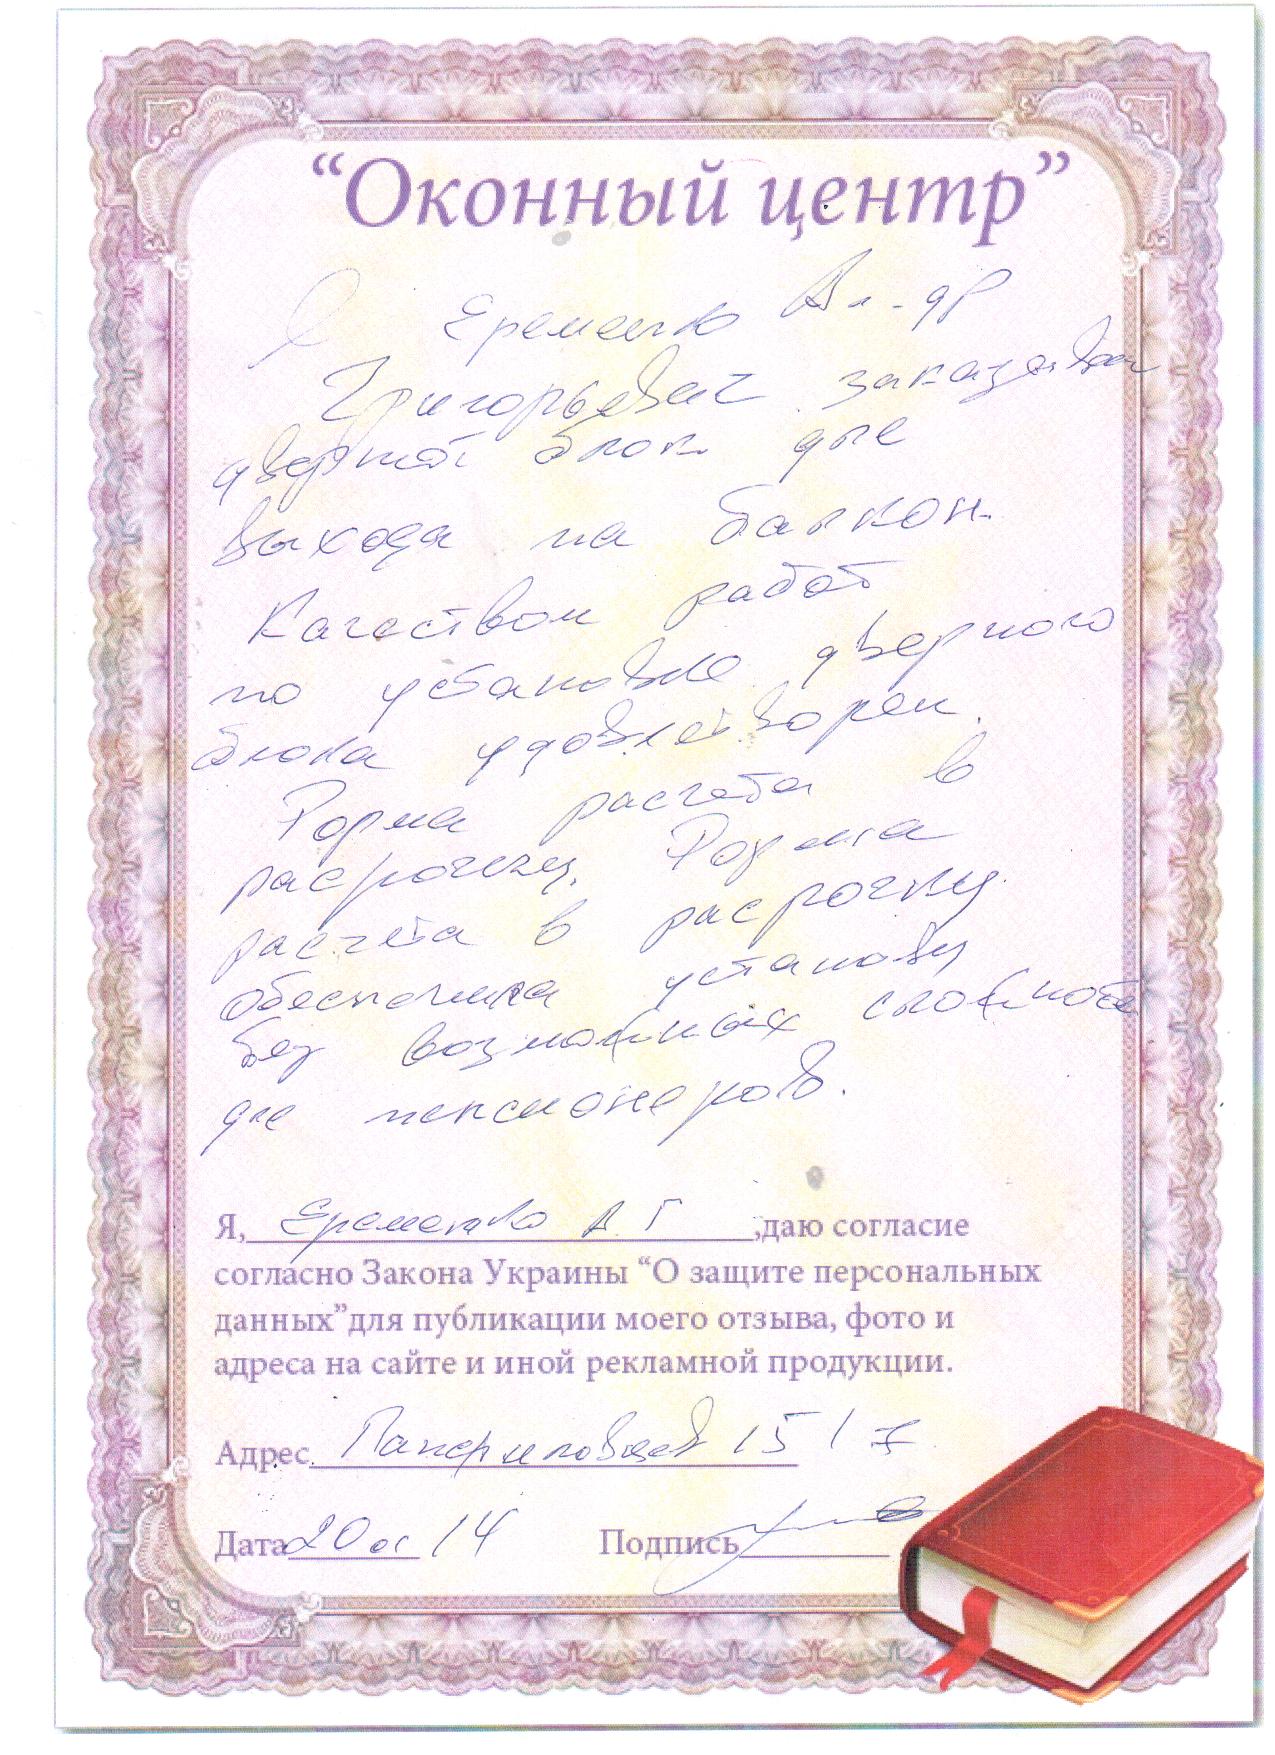 “Оконный центр”
Я Еременко Ал-др
Григорьевич заказывал
дверной блок для
выхода на балкон.
Качеством работ
по установке дверного
блока удовлетворен.
Форма расчета в
расрочку. Форма
расчета в расрочку
обеспечила
без возможных
для пенсионеров.
Я, Еременко А Г ,даю согласие
согласно Закона Украины “О защите персональных
данных”для публикации моего отзыва, фото и
адреса на сайте и иной рекламной продукции.
Адрес 15/7
Дата 20 01 14 Подпись